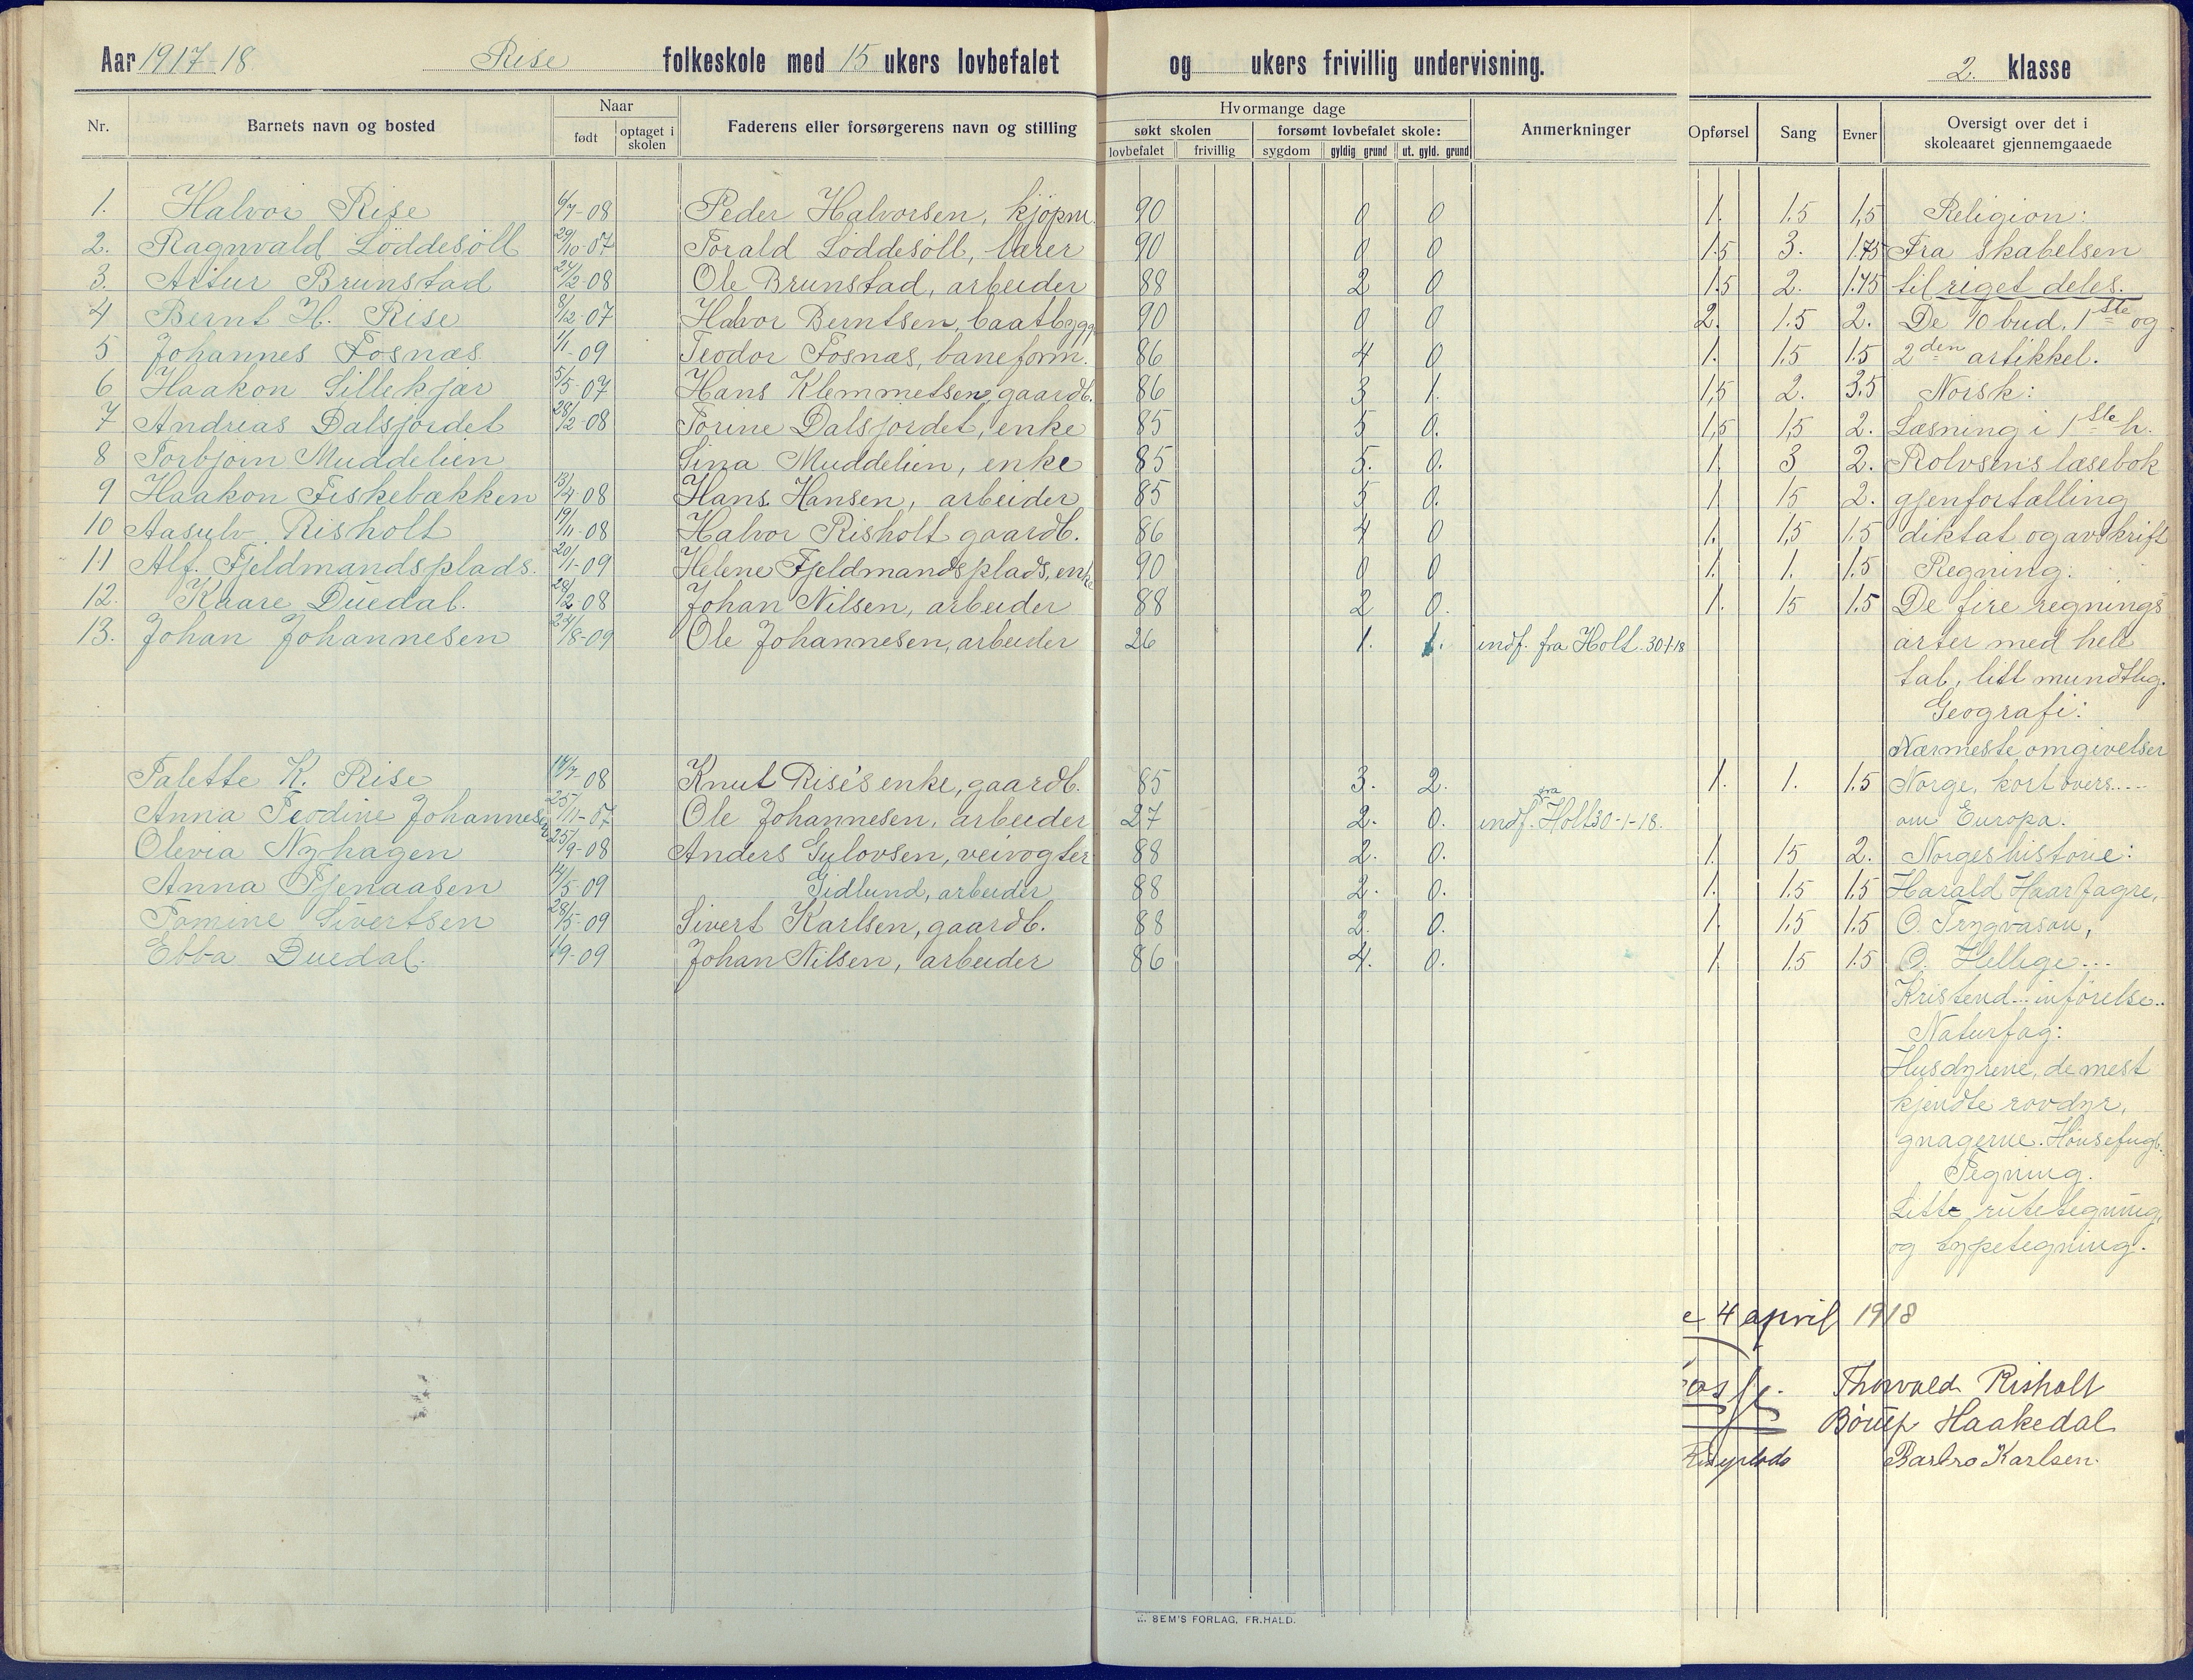 Aar 1917-18 Rise folkeskole med 15 ukers lovbefalet og ukers frivillig undervisning. 2. klasse
Nr. Barnets navn og bosted Naar født optaget i skolen Faderens eller forsørgerens navn og stilling Hvormange dage søkt skolen lovbefalet frivillig forsømt lovbefalet skole: sygdom gyldig grund ut. gyld. grund Anmerkninger Opførsel Sang Evner Oversigt over det i skoleaaret gjennemgaaede
1. Halvor Rise 6/7-08 Peder Halvorsen, kjöpm. 90 0 0 1. 1.5 1,5 Religion:
2. Ragnvald Löddesöll 29/10-07 Torald Löddesöll, lærer 90 0 0 1.5 3. 1.75 Fra skabelsen
3. Artur Brunstad 24/2-08 Ole Brunstad, arbeider 88 2 0 1.5 2. 1.75 til riget deles.
4 Bernt H. Rise 8/12-07 Halvor Berntsen, baatbygg 90 0 0 2. 1.5 2. De 10 bud. 1ste og
5 Johannes Fosnæs 1/1-09 Teodor Fosnæs, baneform. 86 4 0 1. 1.5 1.5 2den artikkel.
6 Haakon Lillekjær 5/5-07 Hans Klemmetsen, gaardb. 86 3 1. 1,5 2. 3.5 Norsk:
7 Andreas Dalsjordet 28/2-08 Torine Dalsjordet, enke 85 5 0. 1,5 1,5 2. Læsning i 1ste h.
8 Torbjørn Muddelien Sina Muddelien, enke 85 5. 0. 1 3 2. Rolvsens læsebok
9 Haakon Fiskebækken 13/4-08 Hans Hansen, arbeider 85 5 0. 1 15 2. gjenfortælling
10 Aasulv Risholt 19/11-08 Halvor Risholt gaardb. 86 4 0 1. 1,5 1.5 diktat og avskrift
11 Alf. Fjeldmandsplads. 20/1-09 Helene Fjeldmandsplads, enke 90 0 0 1. 1. 1.5 Regning.
12. Kaare Duedal. 29/2 08 Johan Nilsen, arbeider 88 2 0. 1. 15 1.5 De fire regnings
13. Johan Johannesen 24/8-09 Ole Johannesen, arbeider 26 1. 1. indf. fra Holt. 30/1-18 arter med hele
tal, litt mundtlig.
Geografi:
Nærmeste omgivelser
Talette K. Rise 14/7-08 Knut Rise's enke, gaardb. 85 3. 2. 1. 1. 1.5 Norge, kort overs....
Anna Teodine Johannesen 25/11-07 Ole Johannesen, arbeider 27 2. 0. indf. fra Holt 30-1-18. om Europa.
Olevia Nyhagen 25/9-08 Anders Gulovsen, veivogter 88 2. 0. 1. 15 2. Norgeshistorie:
Anna Tjenaasen 12/5-09 Gidlund, arbeider 88 2. 0. 1. 1.5 1.5 Harald Haarfagre,
Tomine Sivertsen 28/5-09 Sivert Karlsen, gaardb. 88 2. 0. 1. 1,5 1.5 O. Trygvason,
Ebba Duedal. 1/9-09 Johan Nilsen, arbeider 86 4. 0. 1 1.5 1.5 O. Hellige...
Kristend... inførelse..
Naturfag:
Husdyrene, de mest
kjendte rovdyr,
gnagerne. Hönsefugl.
Tegning.
Litt rutetegning,
og typetegning.
4 april 1918
Thorvald Risholt
Börup Haakedal
Barbro Karlsen.
SEM'S FORLAG, FR.HALD.